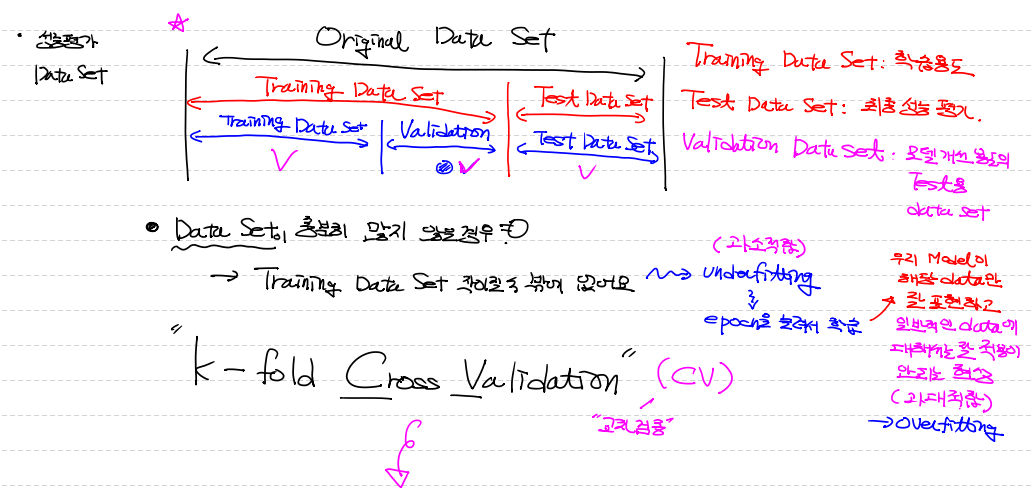 · 성능평가
Data Set
Original Data Set
Training Data Set
Test Data Set
Training Data Set
Validation
Test Data Set
Training Data Set: 학습용도
Test Data Set: 최종 성능 평가.
Validation Data set: 모델 개선 용도의
Test용
data set
Data Set이 충분히 많지 않을 경우?
→ Training Data Set 작아질 수 밖에 없어요
(과소적합)
underfitting
epoch을 늘려서 학습
우리 Model이
해당 data만
잘 표현하고
일반적인 data에
대해서는 잘 적용이
안되는 현상
(과대적합)
→ Overfitting
"k-fold Cross Validation" (CV)
"교차검증"